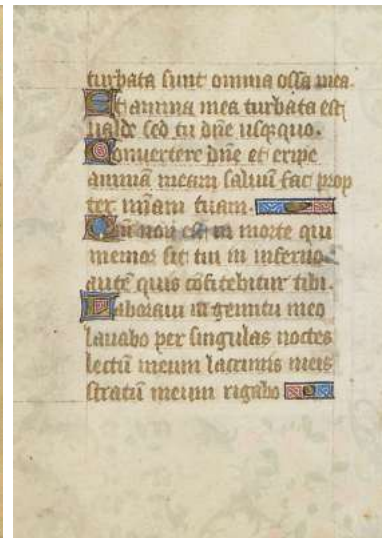 turbata sunt omnia ossa mea.
Et anima mea turbata est
ualde sed tu dñe usq̨quo.
Conuertere dñe et eripe
animā meam saluū fac prop
ter miām tuam.
Qm̄ non est in morte qui
memor sit tui in inferno
autē quis cōfitebitur tibi.
Laboraui in gemitu meo
lauabo per singulas noctes
lectū meum lacrimis meis
stratū meum rigabo